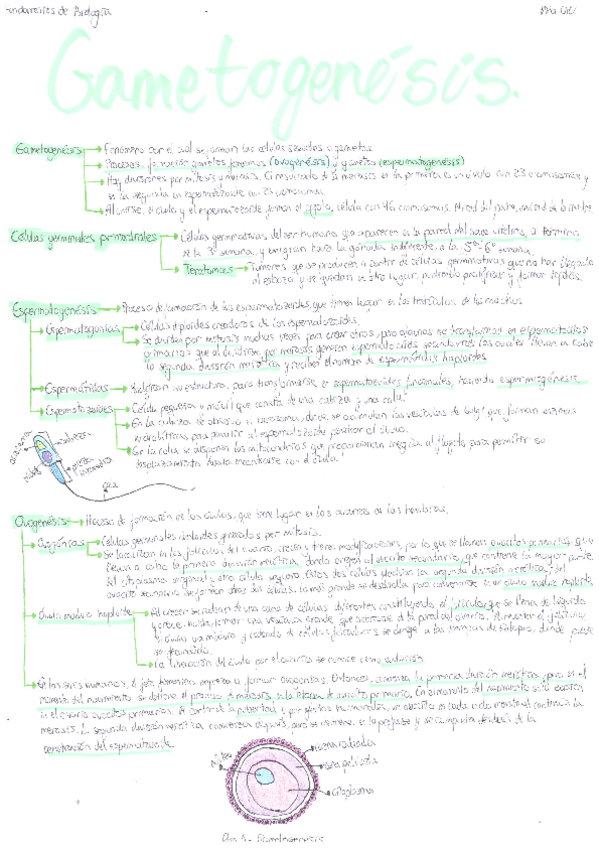 Fundamentos de Biología
Gametogénesis.
Gametogénesis → Fenómeno por el cual se forman las células sexuales o gametos.
→ Procesos: formación gametos femeninos (ovogénesis) y gametos (espermatogénesis)
→ Hay divisiones por mitosis y meiosis. El resultado de la meiosis en la primera es un óvulo con 23 cromosomas y
en la segunda un espermatozoide con 23 cromosomas.
→ Al unirse, el óvulo y el espermatozoide forman el cigoto, célula con 46 cromosomas. Mitad del padre, mitad de la madre.
Células germinales primordiales → Células germinativas del ser humano que aparecen en la pared del saco vitelino, a término
de la 3ª semana, y emigran hacia la gónada indiferente, a la 5ª-6ª semana.
Teratomas → Tumores que se producen a partir de células germinativas que no han llegado
al esbozo y se quedan en otro lugar, pudiendo proliferar y formar tejidos.
Espermatogénesis → Proceso de formación de los espermatozoides, que tienen lugar en los testículos de los machos.
→ Espermatogonias → Células diploides creadoras de los espermatozoides.
→ Se dividen por mitosis muchas veces para crear otras, pero algunas se transforman en espermatocitos
primarios que al dividirse por meiosis generan espermatocitos secundarios los cuales llevan a cabo
la segunda división meiótica y reciben el nombre de espermátidas haploides.
→ Espermátidas → su estructura, para transformarse en espermatozoides funcionales, haciendo espermiogénesis.
→ Espermatozoides → Célula pequeña y móvil que consta de una cabeza y una cola.
→ En la cabeza se observa el acrosoma, donde se acumulan las vesículas de Golgi que forman enzimas
hidrolíticas para permitir al espermatozoide penetrar al óvulo.
→ En la cola se disponen las mitocondrias que proporcionan energía al flagelo para permitir su
desplazamiento hasta encontrarse con el óvulo.
acrosoma
cabeza
núcleo
pieza intermedia
cola
Ovogénesis → Proceso de formación de los óvulos, que tiene lugar en los ovarios de las hembras.
→ Oogonias → Células germinales diploides generadas por mitosis.
→ Se localizan en los folículos del ovario, crecen y tienen modificaciones, por lo que se llaman ovocitos primarios que
llevan a cabo la primera división meiótica, dando origen al ovocito secundario, que contiene la mayor parte
del citoplasma original y otra célula pequeña. Estas dos células efectúan la segunda división meiótica; del
ovocito secundario se forman otras dos células. La más grande se desarrolla para convertirse en un óvulo maduro haploide.
→ Óvulo maduro haploide → Al crecer se rodean de una capa de células diferentes constituyendo el folículo que se llena de líquido
y crece, hasta formar una vesícula grande que acercarse a la pared del ovario. Al reventar el folículo,
el óvulo ya maduro y rodeado de células foliculares se dirige a las trompas de Falopio, donde puede
ser fecundado.
→ La liberación del óvulo por el ovario se conoce como ovulación.
→ En los seres humanos, el feto femenino empieza a formar oogonias. Entonces, comienza la primera división meiótica, pero en el
momento del nacimiento se detiene el proceso de meiosis, en la etapa de ovocito primario. En el momento del nacimiento sólo existen
en el ovario ovocitos primarios. A partir de la pubertad, y por efectos hormonales, un ovocito en cada ciclo menstrual continúa la
meiosis. La segunda división meiótica comienza después, pero se detiene en la profase y se completa después de la
penetración del espermatozoide.
Núcleo
corona radiada
zona pelúcida
citoplasma